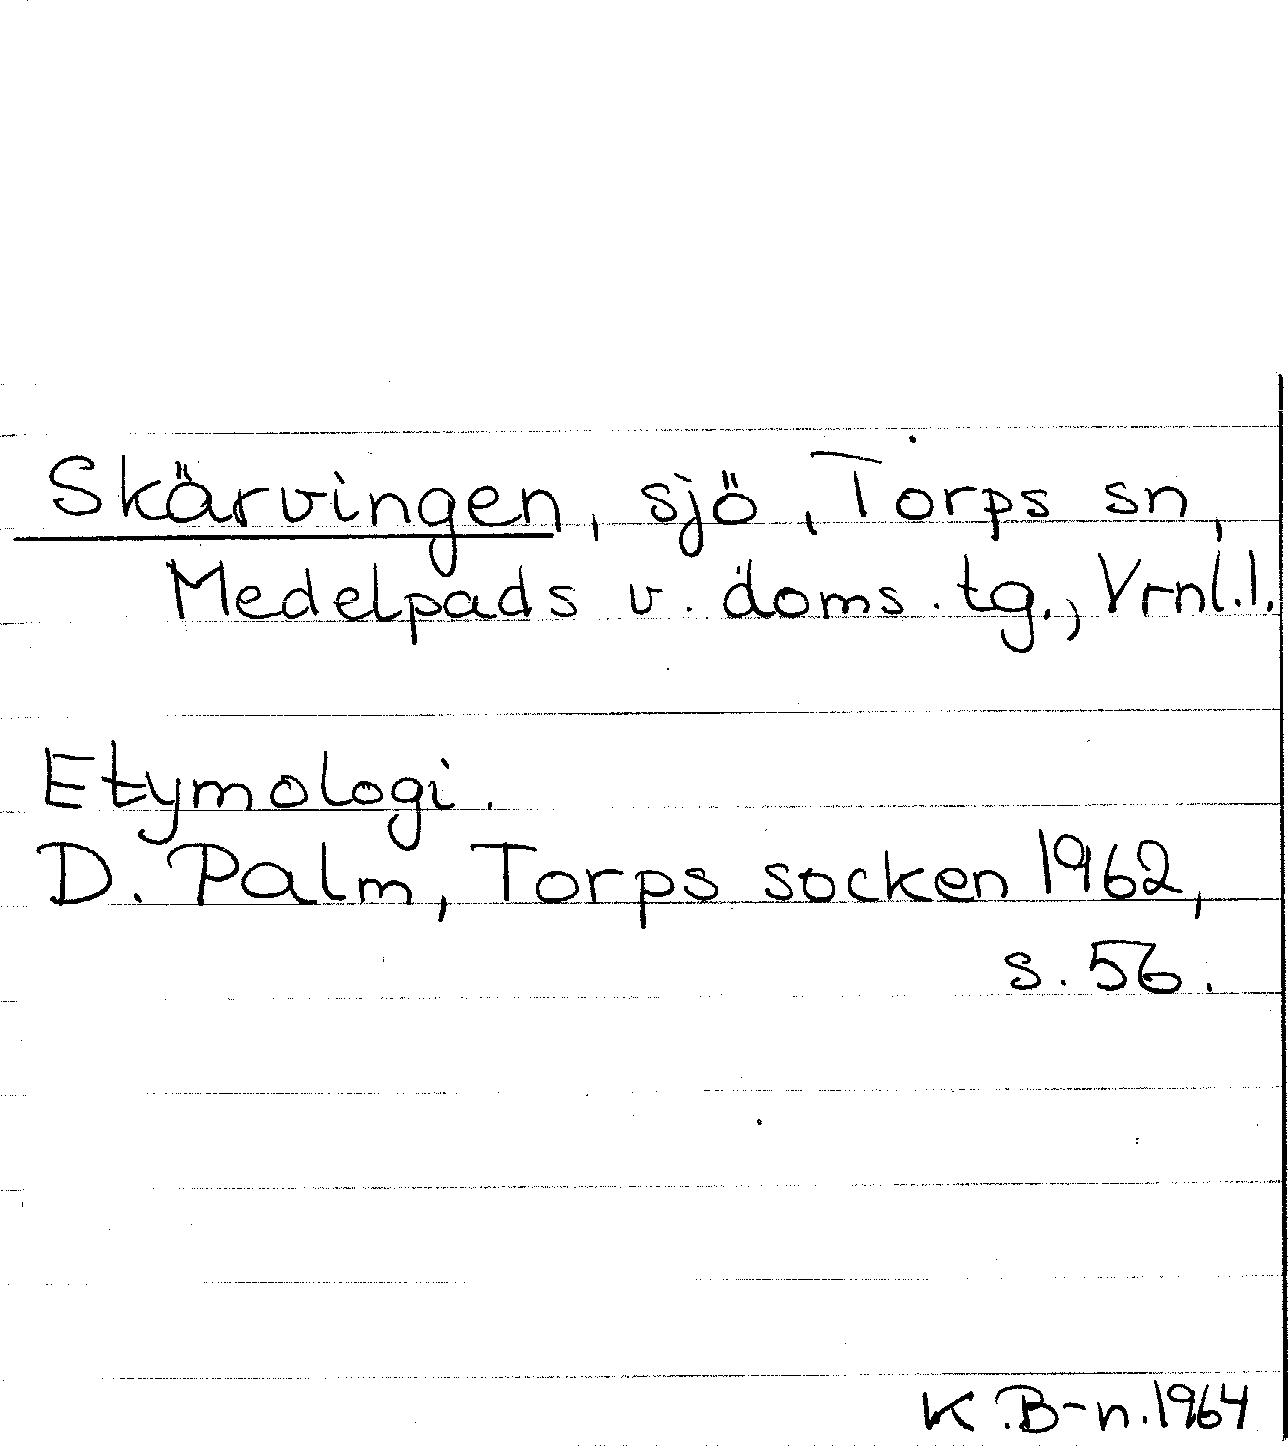 Skärvingen, sjö, Torps sn,
Medelpads v. doms. tg., Vrnl.l.
Etymologi.
D. Palm, Torps socken 1962,
s. 56.
K.B-n.1964